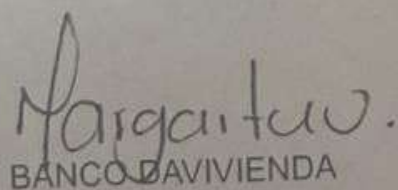 Margarita V.
BANCO DAVIVIENDA